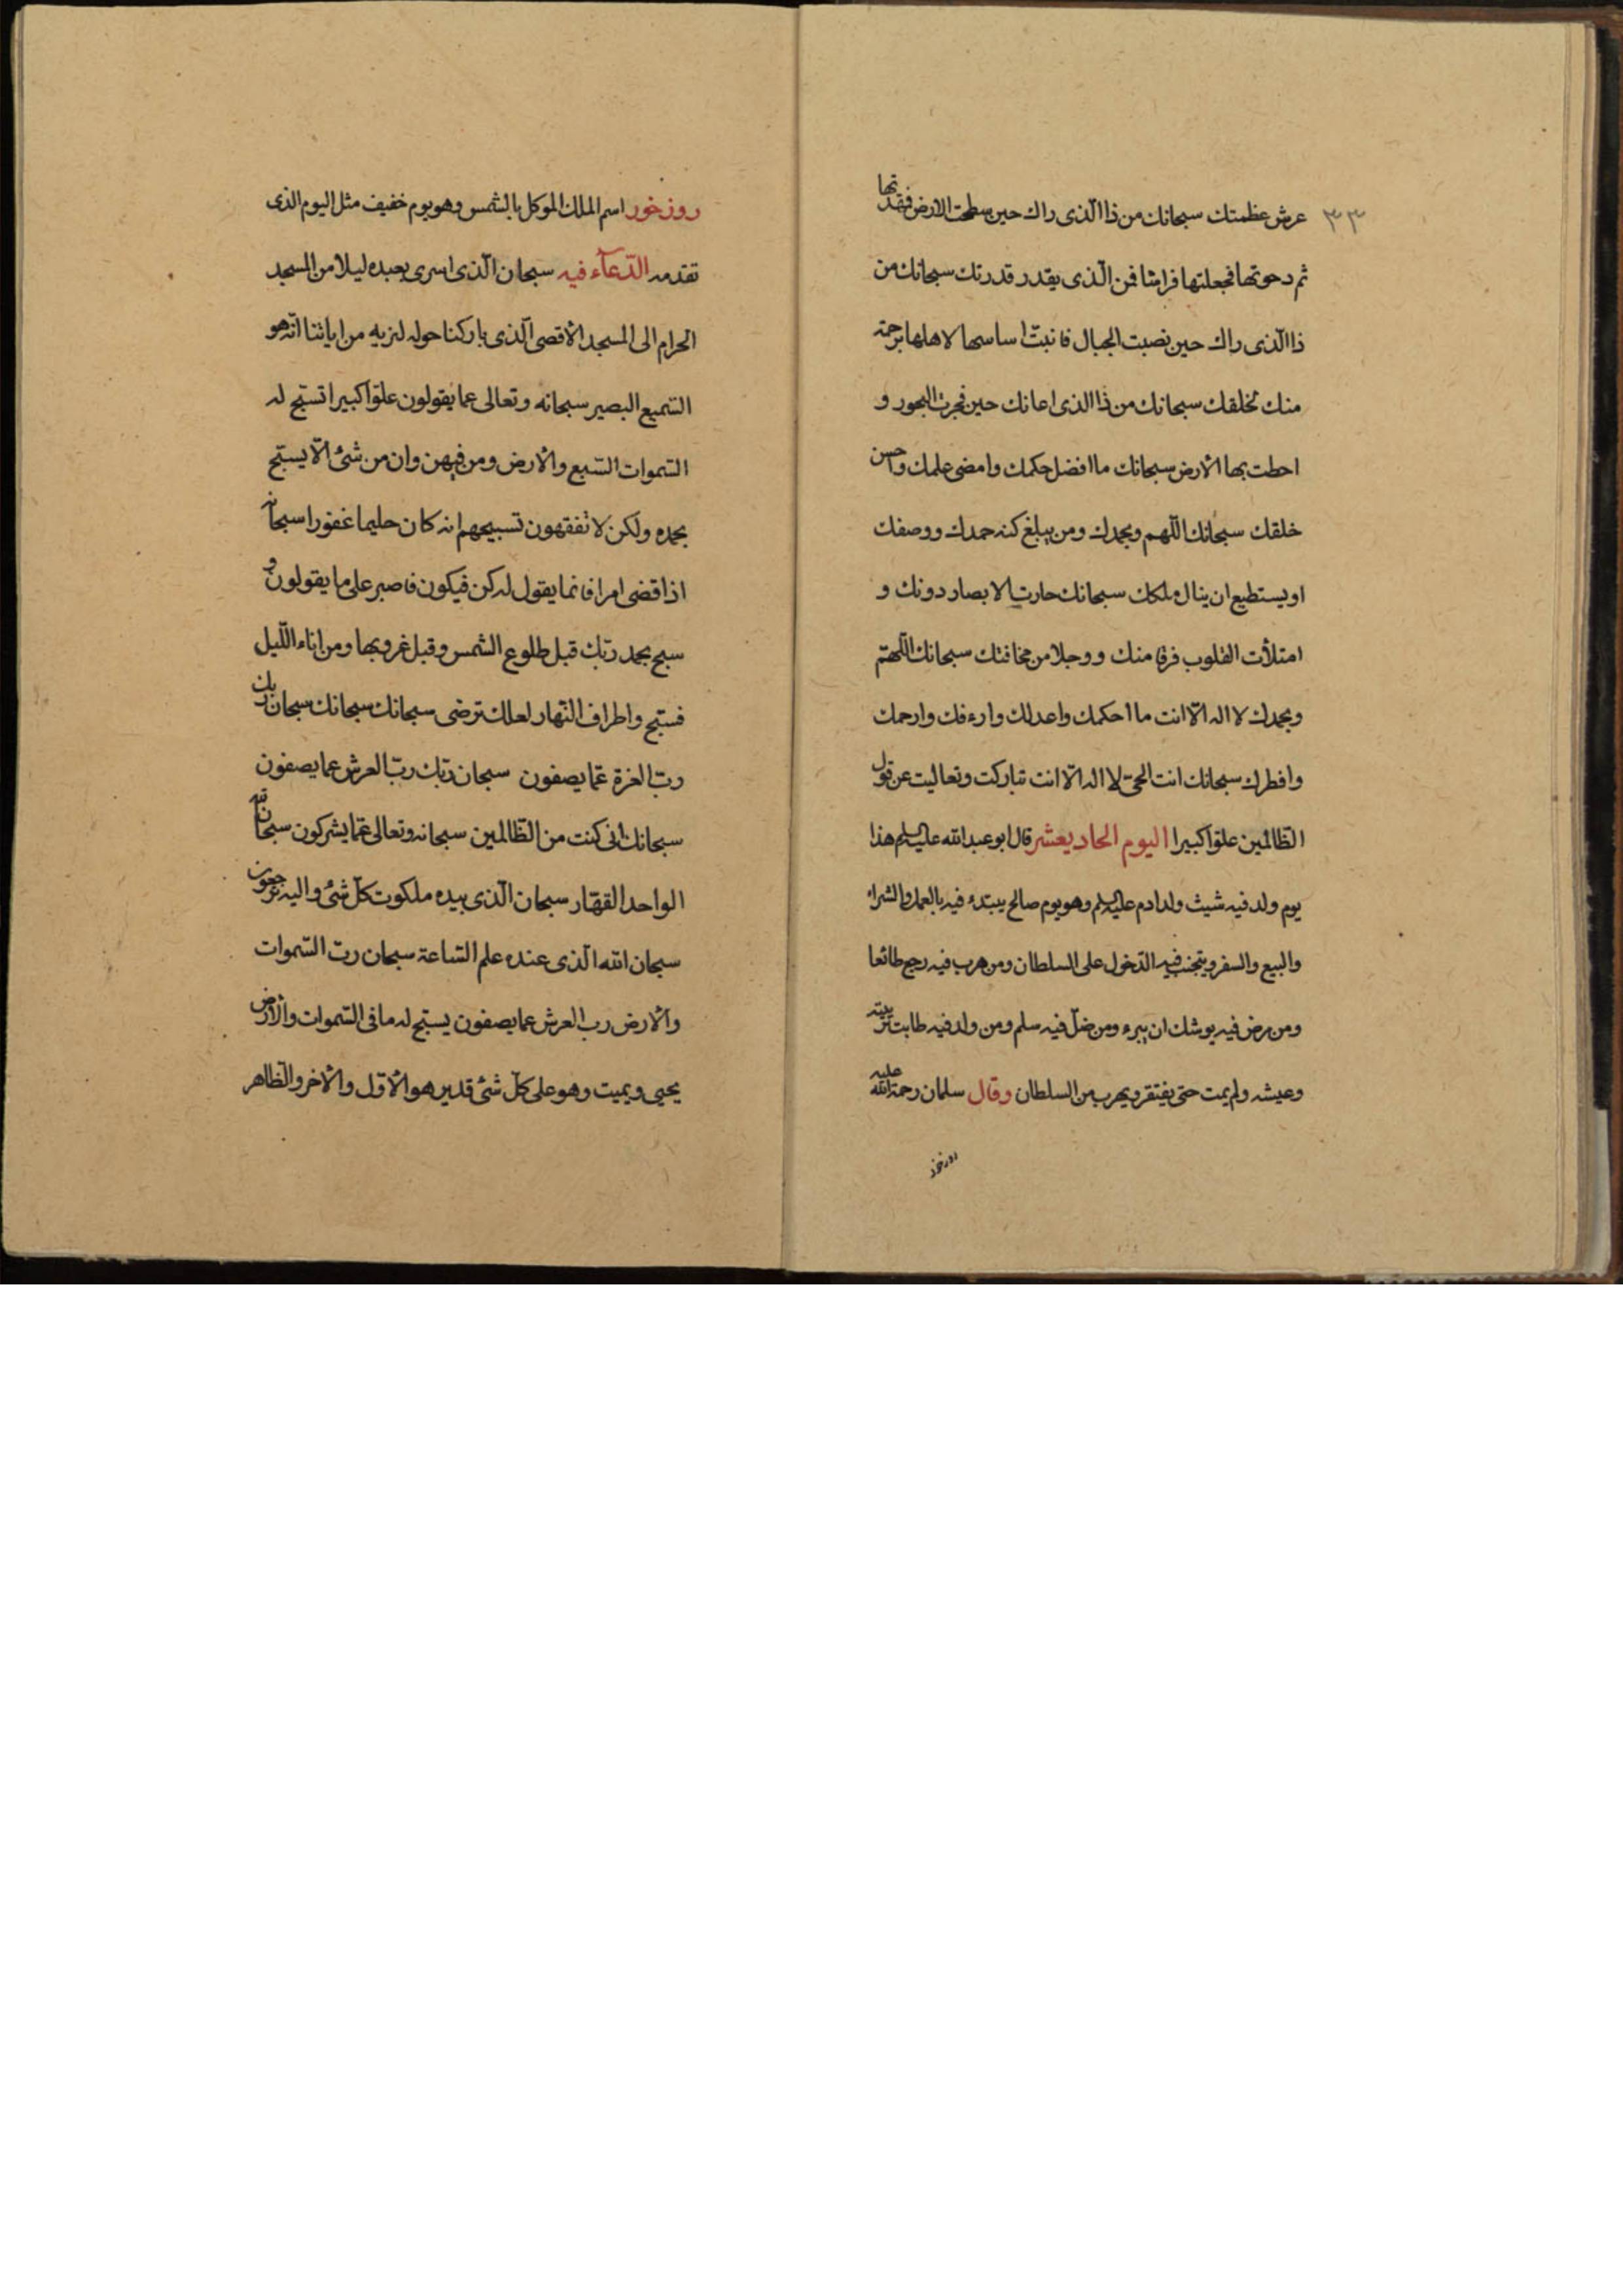 ٣٣
عرش عظمتك سبحانك من ذا الذى راك حين سطحت الارض فقدتها
ثم دحوتها فجعلتها فراشا فمن الّذى يقدر قدرتك سبحانك من
ذا الّذى راك حين نصبت الجبال فانبتّ اساسها لاهلها رحمة
منك لخلقك سبحانك من ذا الذى اعانك حين فجرت البحور و
احطت بها الأرض سبحانك ما افضل حكمك وامضى علمك واحسن
خلقك سبحانك اللّهم وبحمدك ومن يبلغ كنه حمدك ووصفك
او يستطيع ان ينال ملكك سبحانك حارت الابصار دونك و
امتلأت القلوب فرقا منك ووجلا من مخافتك سبحانك اللّهمّ
وبحمدك لا اله الّا انت ما احكمك واعدلك وارءفك وارحمك
وافطرك سبحانك انت الحىّ لا اله الّا انت تباركت وتعاليت عن قول
الظّالمين علوّا كبيرا اليوم الحاديعشر قال ابو عبد الله عليه السلم هذا
يوم ولد فيه شيث ولد ادم عليه السلم وهو يوم صالح يبتدء فيه بالعمل والشراء
والبيع والسفر ويتجنب فيه الدّخول على السلطان ومن هرب فيه رجع طائعا
ومن مرض فيه يوشك ان يبرء ومن ضلّ فيه سلم ومن ولد فيه طابت تربيته
وعيشه ولم يمت حتى يفتقر ويهرب من السلطان وقال سلمان رحمة الله عليه
روز خور
روز خور اسم الملك الموكل بالشمس وهو يوم خفيف مثل اليوم الذى
تقدمه الدّعآء فيه سبحان الّذى اسرى بعبده ليلا من المسجد
الحرام الى المسجد الأقصى الّذى باركنا حوله لنريه من اياتنا انّه هو
السّميع البصير سبحانه وتعالى عما يقولون علوّا كبيرا تسبّح له
السّموات السّبع والأرض ومن فيهن وان من شئ الّا يسبّح
بحمده ولكن لا تفقهون تسبيحهم انه كان حليما غفورا سبحانه
اذا قضى امرا فانما يقول له كن فيكون فاصبر على ما يقولون و
سبح بحمد ربّك قبل طلوع الشمس وقبل غروبها ومن اناء اللّيل
فسبّح واطراف النّهار لعلك ترضى سبحانك سبحانك سبحان ربك
ربّ العزة عمّا يصفون سبحان ربّك ربّ العرش عما يصفون
سبحانك انى كنت من الظّالمين سبحانه وتعالى عمّا يشركون سبحان الله
الواحد القهّار سبحان الّذى بيده ملكوت كلّ شئ واليه ترجعون
سبحان الله الّذى عنده علم السّاعة سبحان ربّ السّموات
والأرض رب العرش عما يصفون يسبّح له ما فى السّموات والأرض
يحيى ويميت وهو على كلّ شئ قدير هو الأوّل والأخر والظّاهر